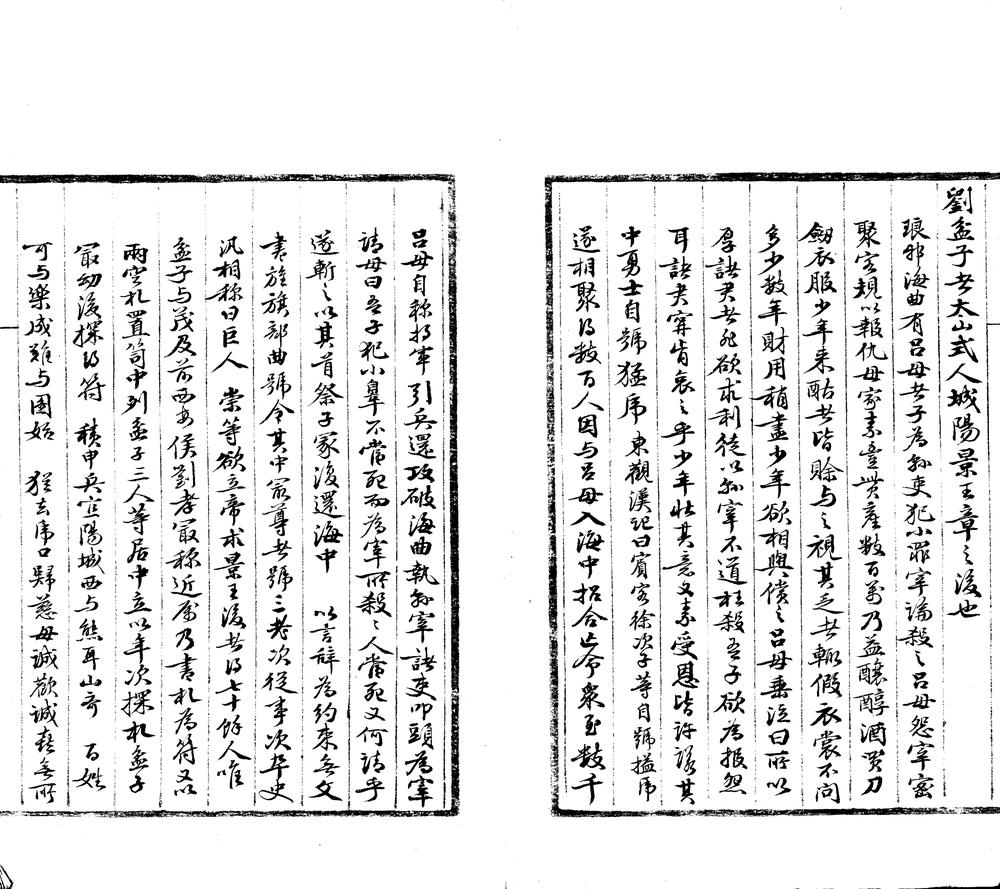 劉盆子者太山式人城陽景王章之後也
琅邪海曲有呂母者子為縣吏犯小罪宰論殺之呂母怨宰密
聚客規以報仇母家素豐貲產數百萬乃益釀醇酒買刀
劒衣服少年來酤者皆賒與之視其乏者輒假衣裳不問
多少數年財用稍盡少年欲相與償之呂母垂泣曰所以
厚諸君者非欲求利徒以縣宰不道枉殺吾子欲為報怨
耳諸君寧肯哀之乎少年壯其意又素受恩皆許諾其
中勇士自號猛虎 東觀漢記曰賓客徐次子等自號搤虎
遂相聚得数百人因与呂母入海中招合亡命衆至数千
呂母自称将軍引兵還攻破海曲執縣宰諸吏叩頭為宰
請母曰吾子犯小辠不當死而為宰所殺〻人當死又何請乎
遂斬之以其首祭子冢復還海中 以言辭為約束無文
書旌旗部曲號令其中冣尊者號三老次從事次卒史
汎相称曰巨人 崇等欲立帝求景王後者得七十餘人唯
盆子与茂及前西安侯劉孝冣称近属乃書札為符又以
兩空札置笥中列盆子三人等居中立以年次探札盆子
冣幼後探得符 積甲兵宜陽城西与熊耳山齊 百姓
可与樂成難与圖始 猶去虎口歸慈母誠歡誠喜無所